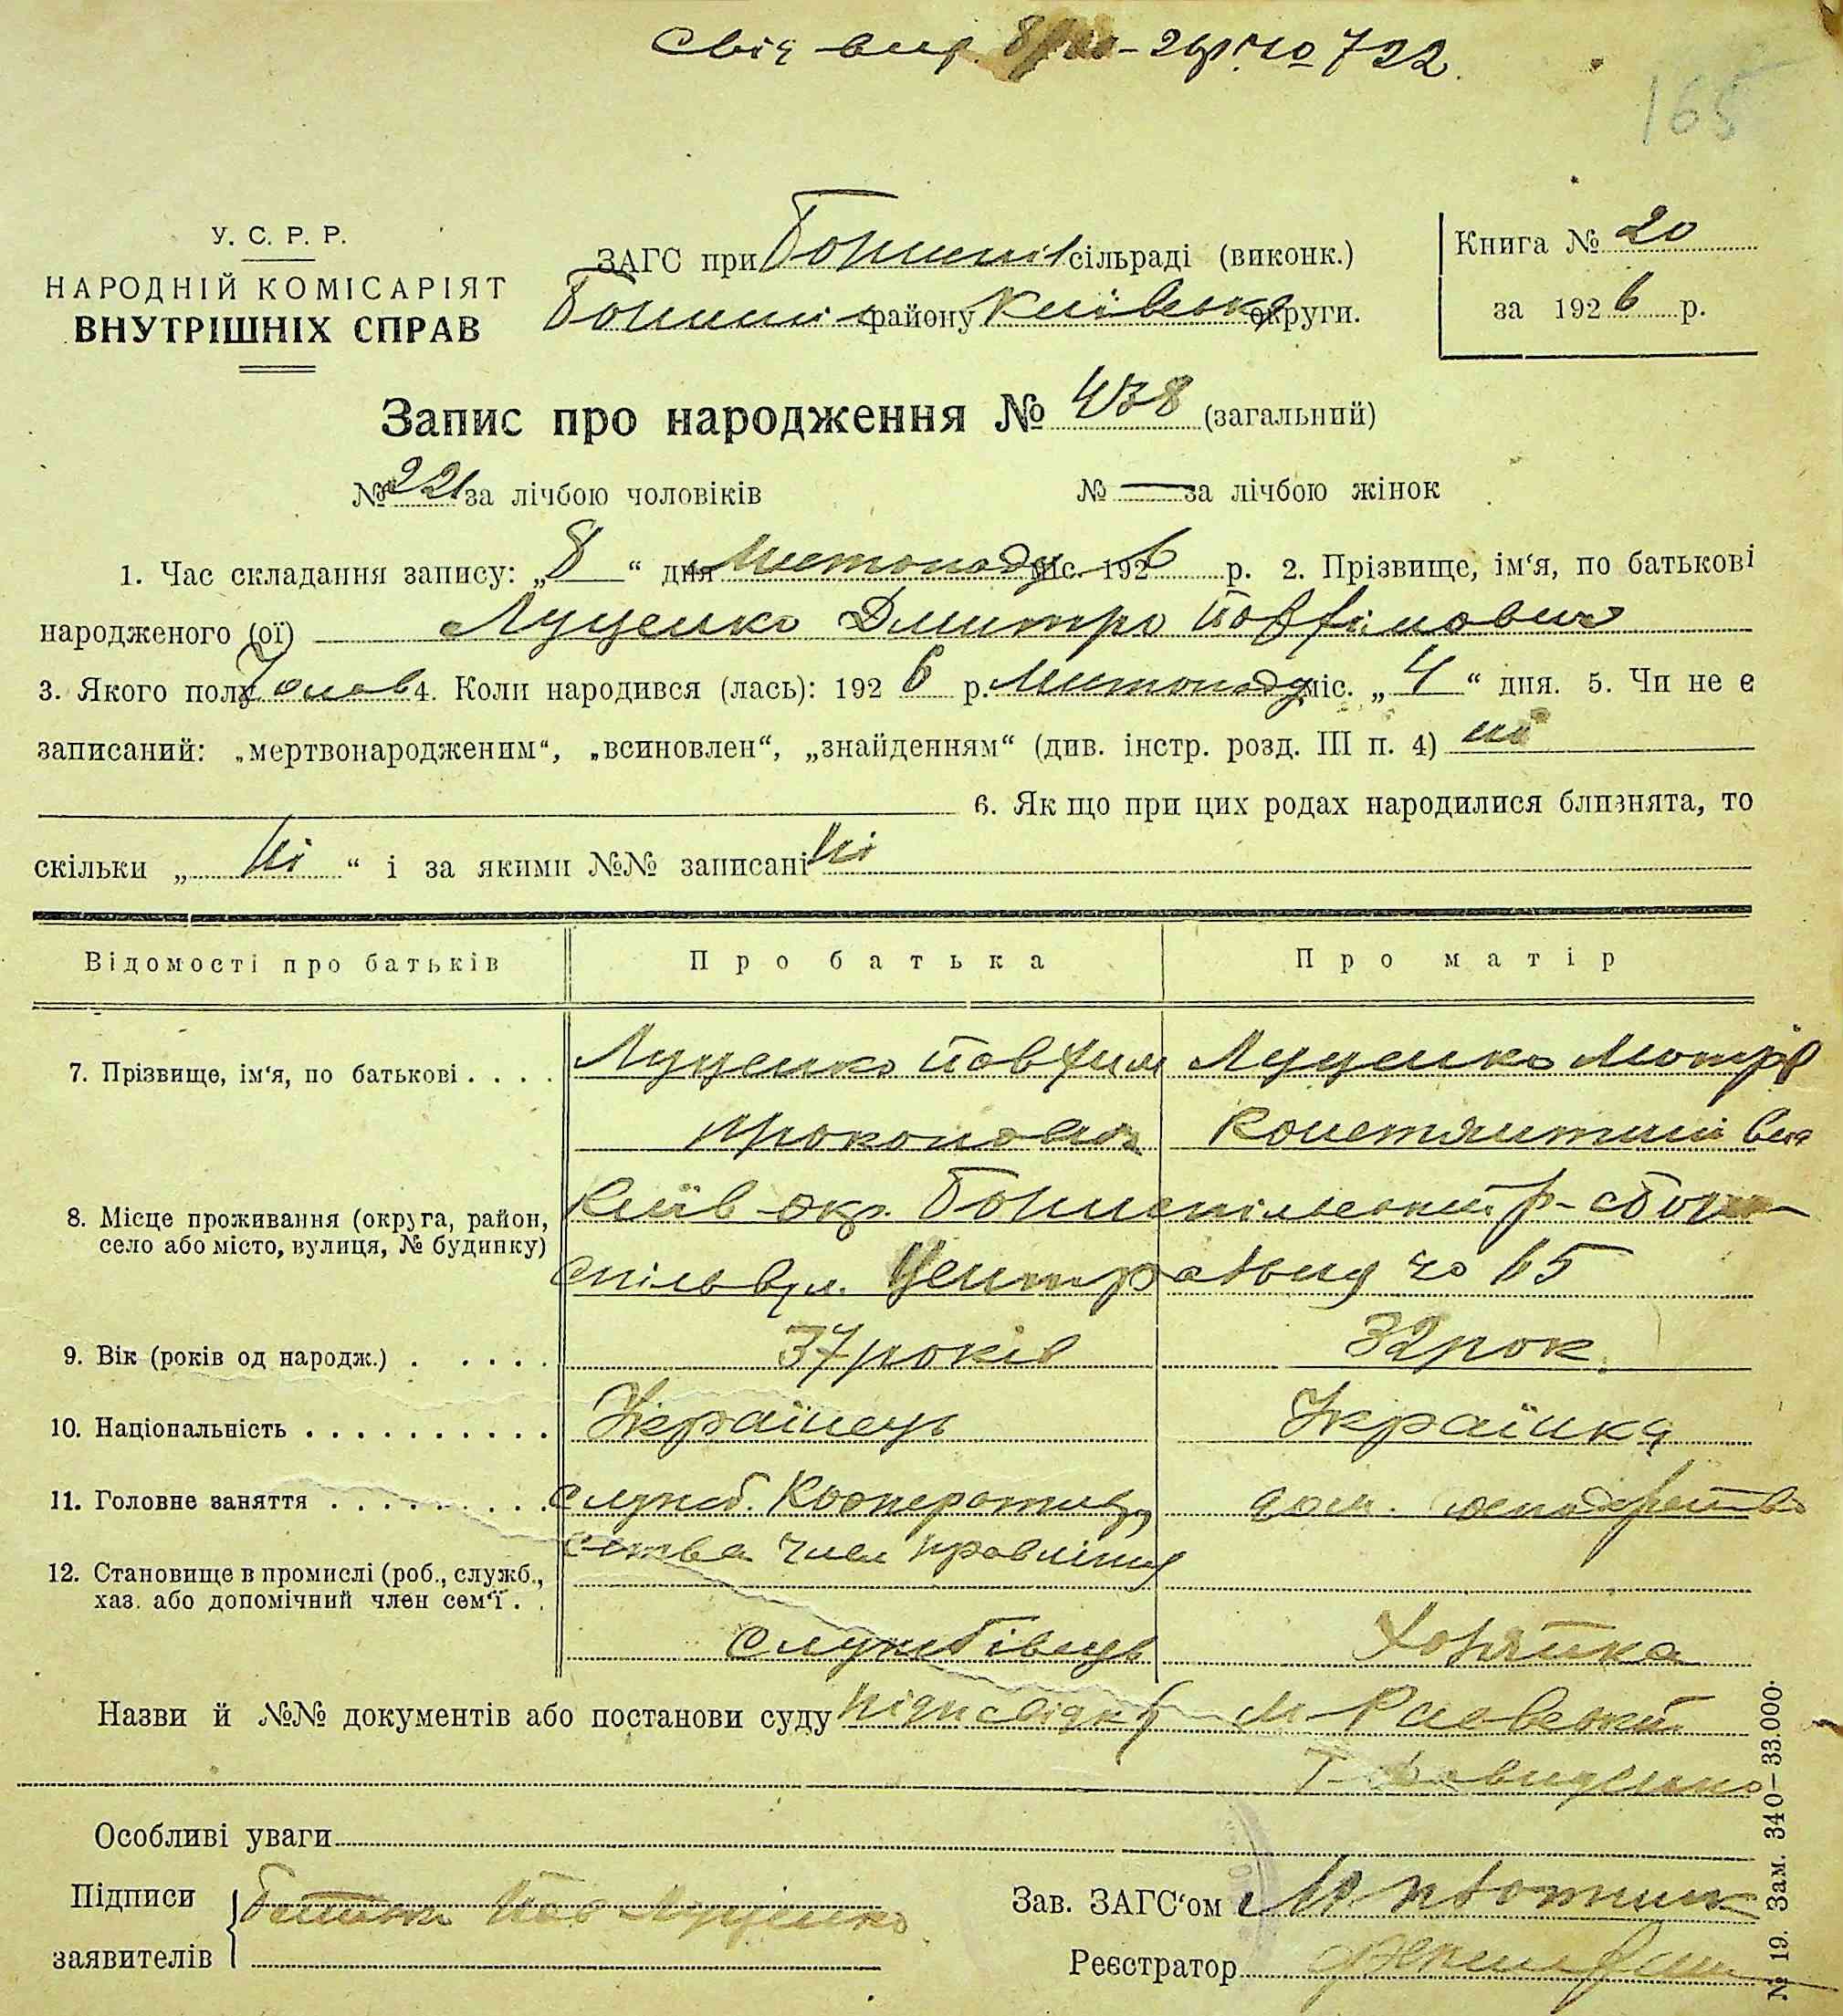 Свід вид. № 722
165
У. С. Р. Р.
НАРОДНІЙ КОМІСАРІЯТ
ВНУТРІШНІХ СПРАВ
ЗАГС при Бориспіл сільраді (виконк.)
Бориспіл району Київськ округи.
Книга № 20
за 1926 р.
Запис про народження № 438 (загальний)
№ 221 за лічбою чоловіків № — за лічбою жінок
1. Час складання запису: „8“ дня Листопаду міс. 1926 р. 2. Прізвище, ім‘я, по батькові
народженого (ої) Луценко Дмитро Йовфімович
3. Якого полу чолов 4. Коли народився (лась): 1926 р. Листопаду міс. „4“ дня. 5. Чи не є
записаний: „мертвонародженим“, „всиновлен“, „знайденням“ (див. інстр. розд. III п. 4) ні
6. Як що при цих родах народилися близнята, то
скільки „ Ні “ і за якими №№ записані Ні
Відомості про батьків Про батька Про матір
7. Прізвище, ім‘я, по батькові . . . . Луценко Йовхим Луценко Мотря
Прокопович Констянтинівна
8. Місце проживання (округа, район, Київ окр. Бориспільський р-
село або місто, вулиця, № будинку) спіль вул. Центральна № 65
9. Вік (років од народж.) . . . . . 37 років 32 рок.
10. Національність . . . . . . . . . . Українець Українка
11. Головне заняття . . . . . . . . . служб. Кооператив дом. господарство
ства член правління
12. Становище в промислі (роб., служб.,
хаз. або допомічний член сем‘ї . . службівець Хозяйка
Назви й №№ документів або постанови суду Підп свідків М
Особливі уваги
Підписи Батько Луценко
заявителів
Зав. ЗАГС‘ом
Реєстратор
№ 19. Зам. 340—33.000.